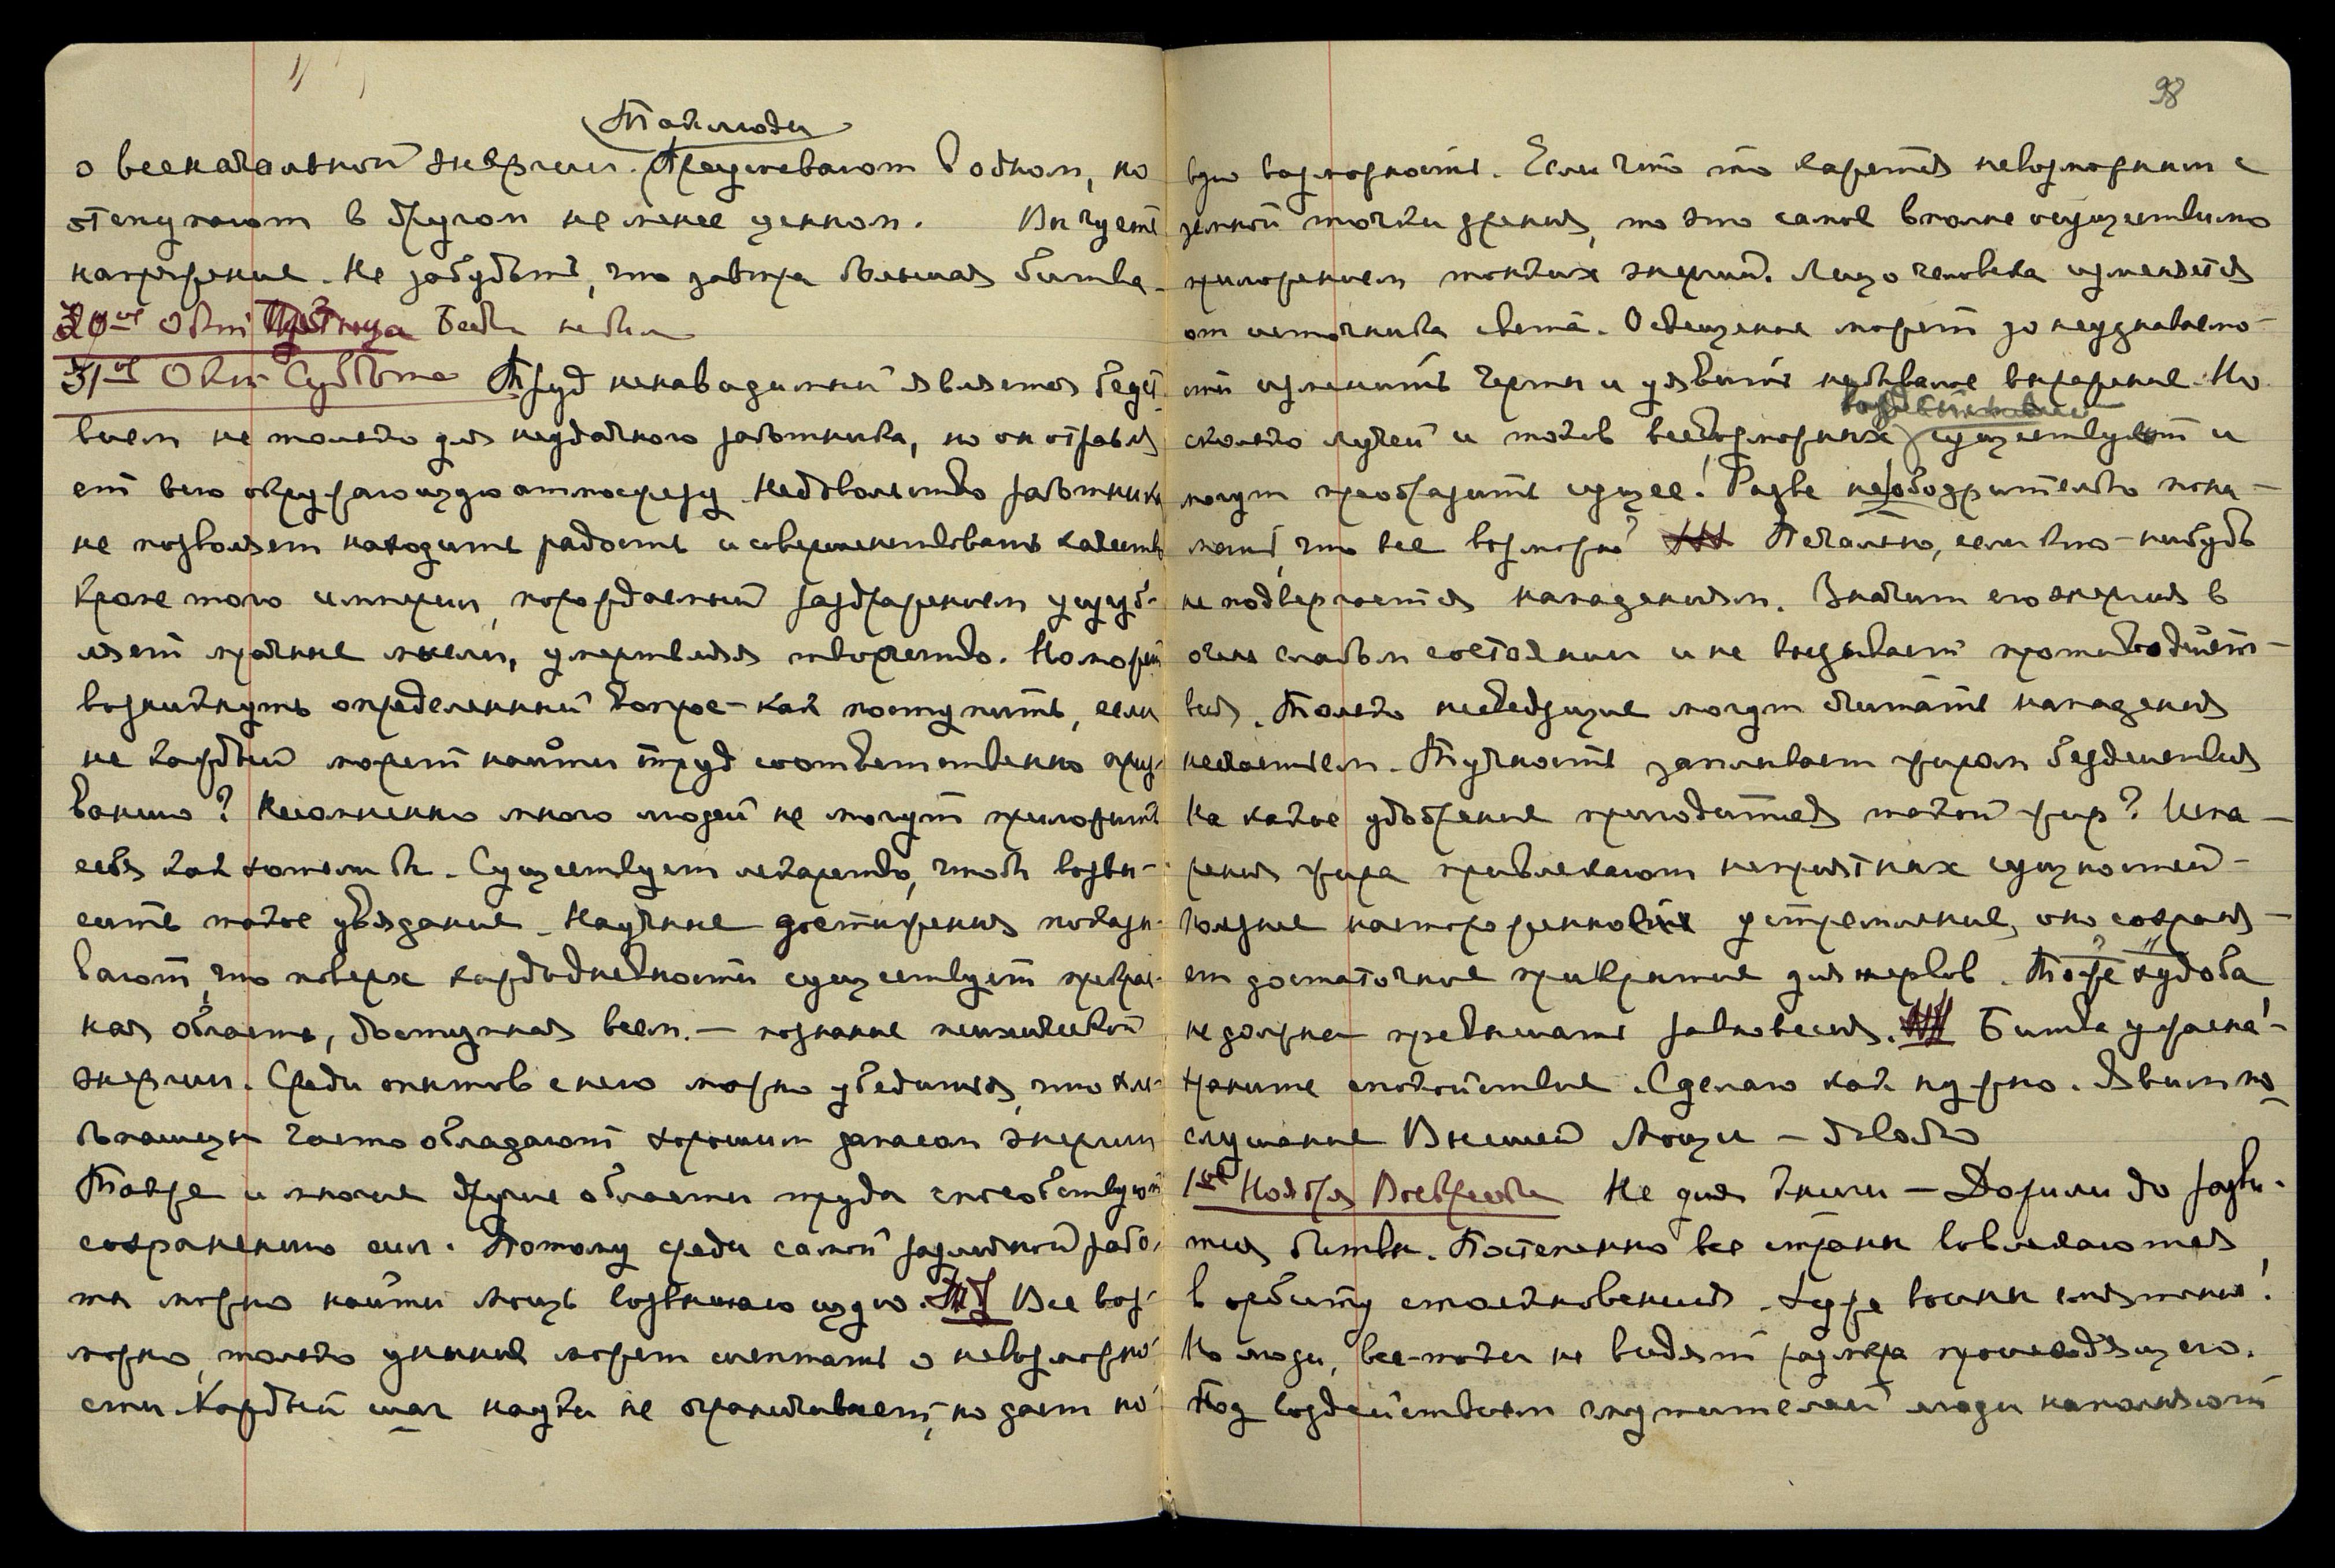 98
Так люди
о всеначальной энергии. Преуспевают в одном, но
отступают в другом не менее ценном. Вы чуете
напряжение. Не забудьте, что завтра большая битва.
30ое Окт Пятница Без беседы
31ое Окт Суббота Труд ненавидимый является бедст-
вием не только для неудачного работника, но он отравля
ет всю окружающую атмосферу. Недовольство работника
не позволяет находить радость и совершенствовать качество
Кроме того империл, порождаемый раздражением, усугуб-
ляет мрачные мысли, умертвляя творчество. Но может
возникнуть определенный вопрос – как поступить, если
не каждый может найти труд соответственно приз-
ванию? Несомненно много людей не могут приложить
себя как хотели бы. Существует лекарство, чтобы возвы-
сить такое увядание. Научные достижения показы-
вают, что поверх каждодневности существует прекрас-
ная область, доступная всем – познание психической
энергии. Среди опытов с нею можно убедиться, что хле-
бопашцы часто обладают хорошим запасом энергии
Также и многие другие области труда способствуют
сохранению сил. Потому среди самой различной рабо-
ты можно найти мощь возвышающую. Все воз-
можно, только уныние может шептать о невозможно-
сти. Каждый шаг науки не ограничивает, но дает но-
вую возможность. Если что-то кажется невозможным с
земной точки зрения, то это самое вполне осуществимо
приложением тонких энергий. Лицо человека изменяется
от источника света. Освещение может до неузнаваемо-
сти изменить черты и уявить небывалое выражение. Но
сколько лучей и токов всевозможных существует и
могут преобразить сущее! Разве не ободрительно пони-
мать, что все возможно? Печально, если кто-нибудь
не подвергается нападениям. Значит его энергия в
очень слабом состоянии и не вызывает противодейст-
вия. Только неведующие могут считать нападения
несчастьем. Тучность заплывает жиром бездействия
На какое удобрение пригодится такой жир? Испа-
рения жира привлекают неприятных сущностей –
полезнее настороженное устремление, оно сохраня-
ет достаточное прикрытие для нервов. Тоже худоба
не должна превышать равновесия. Битва ужасна! –
храните спокойствие. Сделаю как нужно. Явим по-
слушание Высшей Мощи – довольно
1ое Ноября Воскресенье Не для книги – Дожили до разви-
тия битвы. Постепенно все страны вовлекаются
в орбиту столкновения. Хуже войны смятение!
Но люди, все-таки не видят размера происходящего.
Под воздействием глупителей люди наполняют